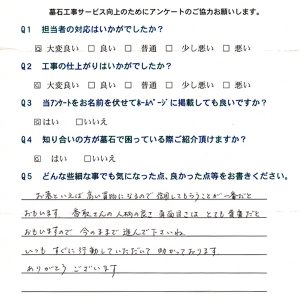 墓石工事サービス向上のためにアンケートのご協力お願いします。
Q1 担当者の対応はいかがでしたか?
☑大変良い □良い □普通 □少し悪い □悪い
Q2 工事の仕上がりはいかがでしたか?
☑大変良い □良い □普通 □少し悪い □悪い
Q3 当アンケートをお名前を伏せてホームページに掲載しても良いですか?
☑はい □いいえ
Q4 知り合いの方が墓石で困っている際ご紹介頂けますか?
☑はい □いいえ
Q5 どんな些細な事でも気になった点、良かった点等をお書きください。
お墓といえば高い買物になるので信用してもらうことが一番だと
おもいます 香取さんの人柄の良さ真面目さは とても貴重だと
おもいますので 今のままで進んで下さいね。
いつも すぐに行動していただいて 助かっております
ありがとうございます